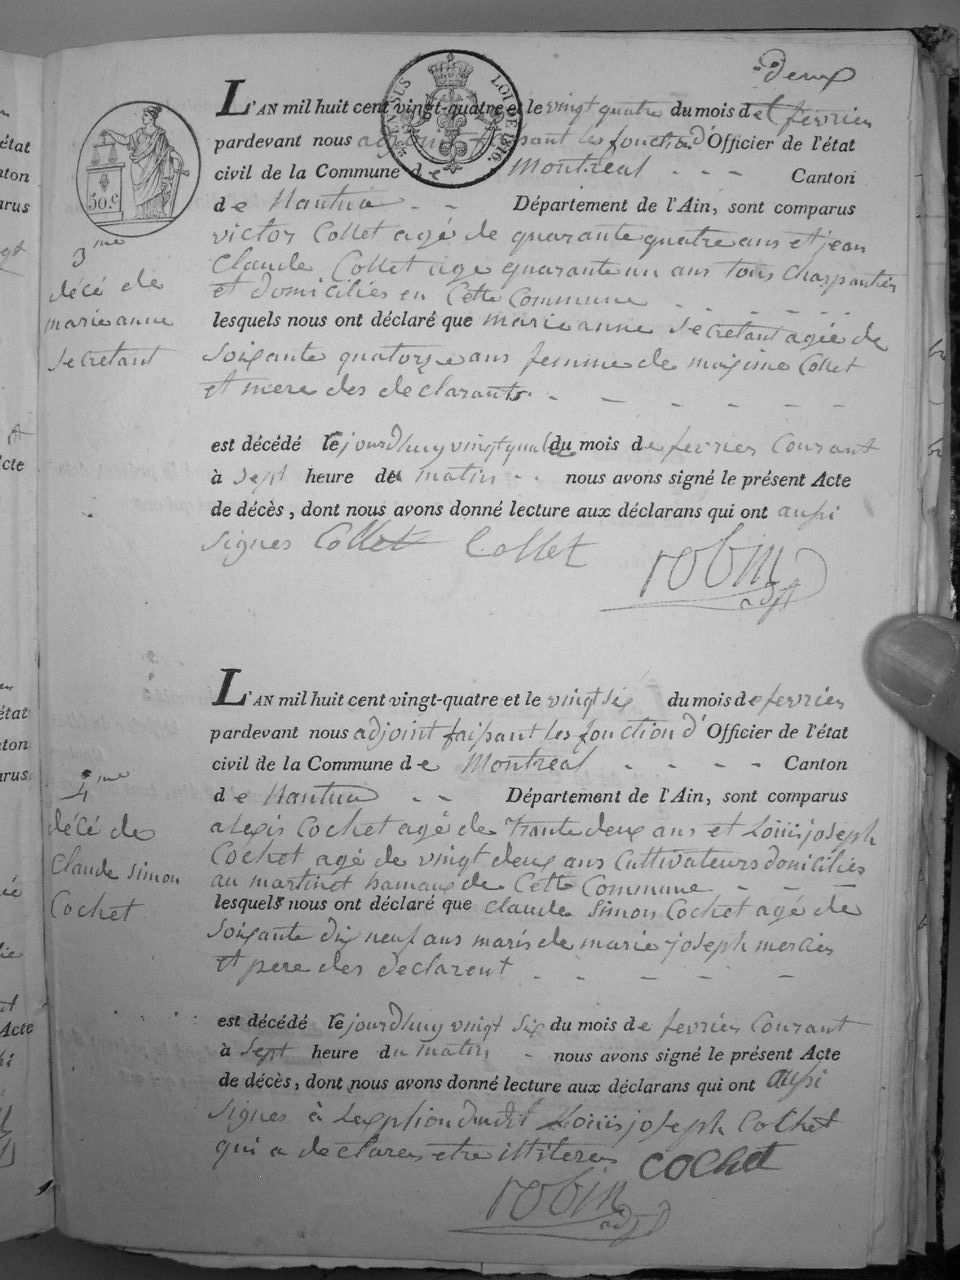 deux
L'AN mil huit cent vingt-quatre et le vingt quatre du mois de fevrier
pardevant nous les fonction d'Officier de l'état
civil de la Commune de Montreal - - - Canton
de Nantua - - Département de l'Ain, sont comparus
victor Collet agé de quarante quatre ans et jean
Claude Collet age quarante un ans tous charpantier
et domiciliés en Cette Commune
lesquels nous ont déclaré que marie anne Secretant agée de
Soixante quatorze ans femme de maxime Collet
et mere des declarants - - - - -
est décédé le jourdhuy vingt quatre du mois de fevrier Courant
à Sept heure du matin - - nous avons signé le présent Acte
de décès, dont nous avons donné lecture aux déclarans qui ont aussi
Signes Collet Collet robin
adjt
3me
décé de
marie anne
Secretant
50.c
LOI DE 1816.
L'AN mil huit cent vingt-quatre et le vingt six du mois de fevrier
pardevant nous adjoint faissant les fonction d'Officier de l'état
civil de la Commune de Montreal - - - - Canton
de Nantua - - Département de l'Ain, sont comparus
alexis Cochet agé de trante deux ans et Louis joseph
Cochet agé de vingt deux ans Cultivateurs domiciliés
au martinet hamaux de Cette Commune - - -
lesquels nous ont déclaré que Claude Simon Cochet agé de
Soixante dix neuf ans maris de marie joseph mercier
et pere des declarent - - - - -
est décédé le jourdhuy vingt Six du mois de fevrier Courant
à Sept heure du matin - nous avons signé le présent Acte
de décès, dont nous avons donné lecture aux déclarans qui ont aussi
Signes à lexption dudit Louis joseph Cochet
qui a declarer etre illiterer Cochet
robin
adjt
4me
décé de
Claude Simon
Cochet